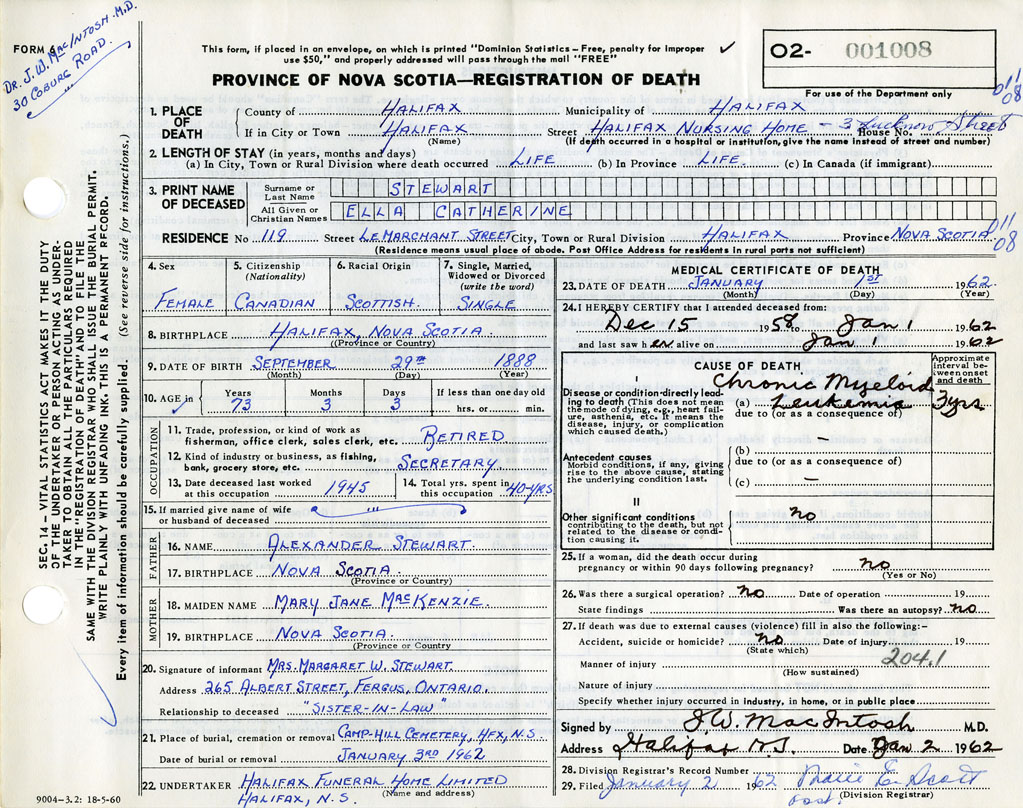 FORM 6
Dr. J. W. MacIntosh M.D.
30 Coburg Road.
This form, if placed in an envelope, on which is printed "Dominion Statistics – Free, penalty for improper ✓
use $50," and properly addressed will pass through the mail "FREE"
PROVINCE OF NOVA SCOTIA—REGISTRATION OF DEATH
02- 001008
For use of the Department only
01/08
1. PLACE OF DEATH County of Halifax Municipality of Halifax
If in City or Town Halifax Street Halifax Nursing Home – 3 Lucknow Street House No.
(Name) (If death occurred in a hospital or institution, give the name instead of street and number)
2. LENGTH OF STAY (in years, months and days)
(a) In City, Town or Rural Division where death occurred Life (b) In Province Life. (c) In Canada (if immigrant)
3. PRINT NAME OF DECEASED Surname or Last Name STEWART
All Given or Christian Names ELLA CATHERINE
RESIDENCE No 119 Street LeMarchant Street City, Town or Rural Division Halifax Province Nova Scotia
011/08
(Residence means usual place of abode. Post Office Address for residents in rural parts not sufficient)
4. Sex Female
5. Citizenship (Nationality) Canadian
6. Racial Origin Scottish.
7. Single, Married, Widowed or Divorced (write the word) Single
8. BIRTHPLACE Halifax, Nova Scotia
(Province or Country)
9. DATE OF BIRTH September 29th 1888
(Month) (Day) (Year)
10. AGE in Years Months Days If less than one day old
✓ 73 3 3 hrs. or min.
OCCUPATION
11. Trade, profession, or kind of work as
fisherman, office clerk, sales clerk, etc. Retired
12. Kind of industry or business, as fishing,
bank, grocery store, etc. Secretary
13. Date deceased last worked at this occupation 1945
14. Total yrs. spent in this occupation 40-yrs
15. If married give name of wife
or husband of deceased
FATHER
16. NAME Alexander Stewart.
17. BIRTHPLACE Nova Scotia.
(Province or Country)
MOTHER
18. MAIDEN NAME Mary Jane MacKenzie.
19. BIRTHPLACE Nova Scotia.
(Province or Country
20. Signature of informant Mrs. Margaret W. Stewart
Address 265 Albert Street, Fergus, Ontario.
Relationship to deceased "Sister-in-Law"
21. Place of burial, cremation or removal Camp-Hill Cemetery, Hfx, N.S
Date of burial or removal January 3rd 1962
22. UNDERTAKER Halifax Funeral Home Limited
Halifax, N.S. (Name and address)
MEDICAL CERTIFICATE OF DEATH
23. DATE OF DEATH January 1st 1962
(Month) (Day) (Year)
24. I HEREBY CERTIFY that I attended deceased from:
Dec 15 1958 Jan 1 1962
and last saw her alive on Jan 1 1962
CAUSE OF DEATH
Approximate interval between onset and death
I
Disease or condition directly leading to death (This does not mean the mode of dying, e.g., heart failure, asthenia, etc. It means the disease, injury, or complication which caused death.)
(a) Chronic Myeloid Leukemia 3yrs
due to (or as a consequence of)
–
Antecedent causes
Morbid conditions, if any, giving rise to the above cause, stating the underlying condition last.
(b)
due to (or as a consequence of)
(c) –
II
Other significant conditions
contributing to the death, but not related to the disease or condition causing it.
no
25. If a woman, did the death occur during
pregnancy or within 90 days following pregnancy? no
(Yes or No)
26. Was there a surgical operation? no Date of operation 19
State findings Was there an autopsy? no
27. If death was due to external causes (violence) fill in also the following:–
Accident, suicide or homicide? no Date of injury 19
(State which)
Manner of injury 204.1
(How sustained)
Nature of injury
Specify whether injury occurred in industry, in home, or in public place
Signed by J.W. MacIntosh M.D.
Address Halifax N.S. Date Jan 2 1962
28. Division Registrar's Record Number
29. Filed January 2 1962 E. Scott
(Division Registrar)
SEC. 14 – VITAL STATISTICS ACT MAKES IT THE DUTY
OF THE UNDERTAKER OR PERSON ACTING AS UNDER-
TAKER TO OBTAIN ALL THE PARTICULARS REQUIRED
IN THE "REGISTRATION OF DEATH" AND TO FILE THE
SAME WITH THE DIVISION REGISTRAR WHO SHALL ISSUE THE BURIAL PERMIT.
WRITE PLAINLY WITH UNFADING INK. THIS IS A PERMANENT RECORD.
Every item of information should be carefully supplied. (See reverse side for instructions.)
9004–3.2: 18-5-60